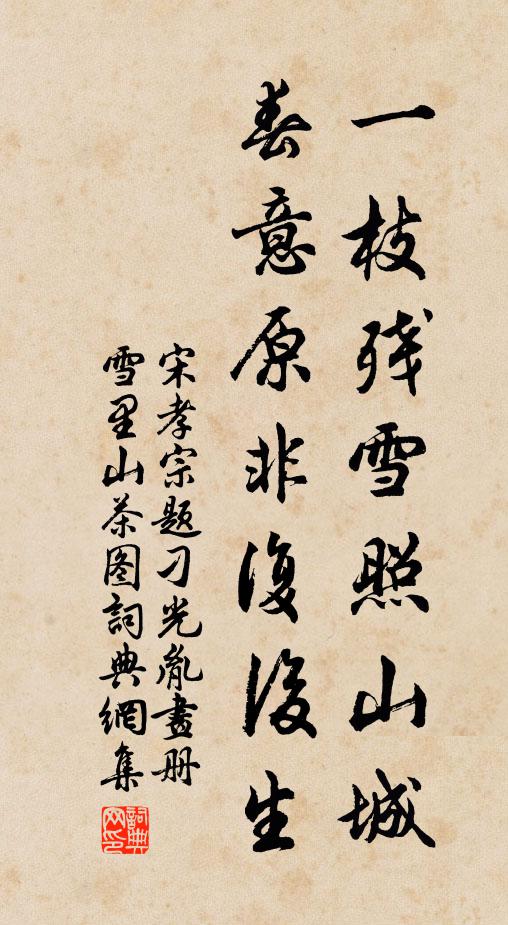 一枝残雪照山城
春意原非復後生
宋孝宗题刁光胤畫册
雪里山茶图詞典網集
詞典网印